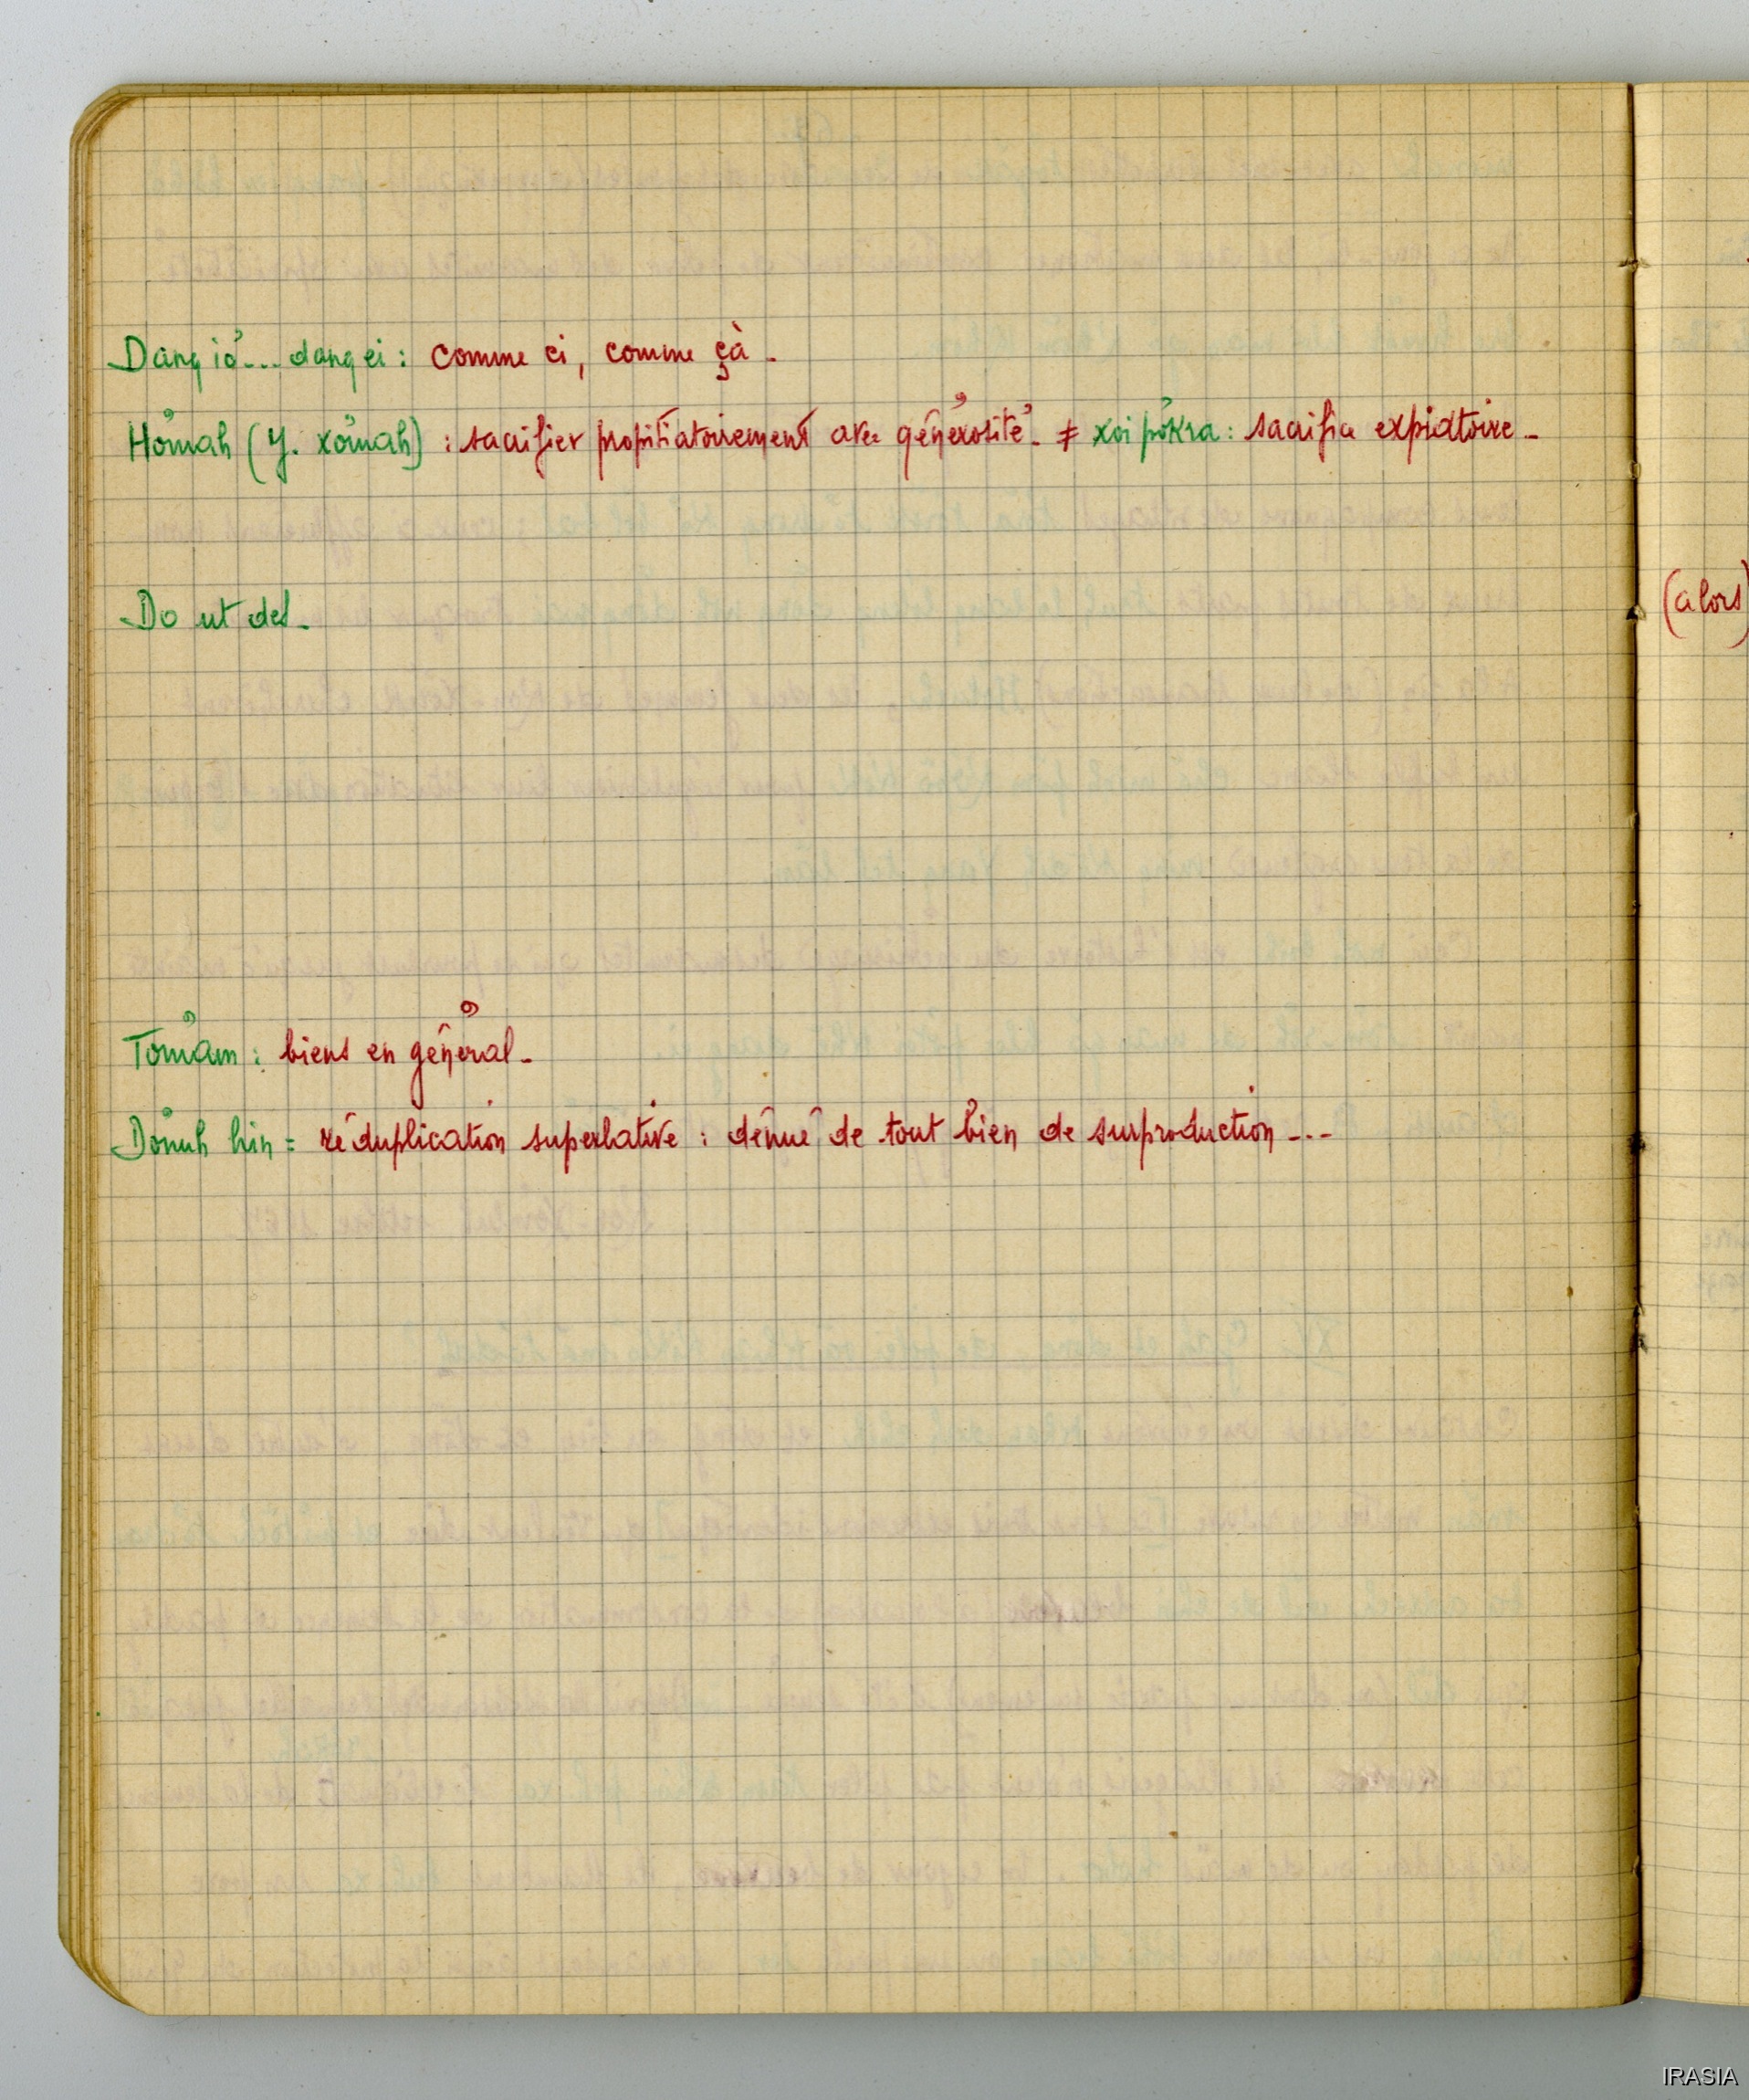 Dang iở... dang ei : comme ci, comme çà -
Hơmah (Y. xơmah) : sacrifier propitiatoirement avec générosité. ≠ xoi pơkra : sacrifice expiatoire -
Do ut des -
(alors)
Tơmam : biens en général -
Dơnuh hin = réduplication superlative : dénué de tout bien de surproduction ---
IRASIA